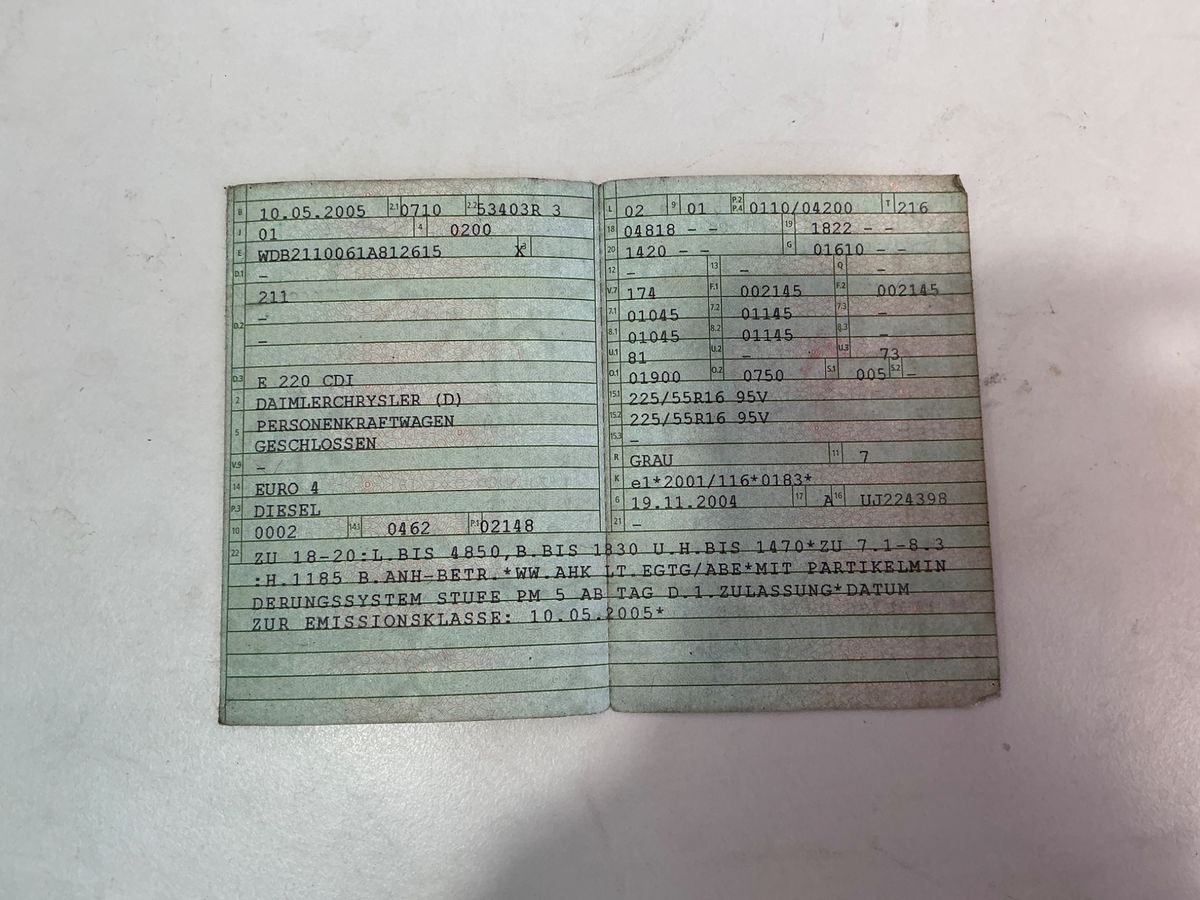 B 10.05.2005 2.1 0710 2.2 53403R 3
J 01 4 0200
E WDB2110061A812615 3 X
D.1 –
211
D.2 –
–
D.3 E 220 CDI
2 DAIMLERCHRYSLER (D)
5 PERSONENKRAFTWAGEN
GESCHLOSSEN
V.9 –
14 EURO 4
P.3 DIESEL
10 0002 14.1 0462 P.1 02148
L 02 9 01 P.2 P.4 0110/04200 T 216
18 04818 – – 19 1822 – –
20 1420 – – G 01610 – –
12 – 13 – Q –
V.7 174 F.1 002145 F.2 002145
7.1 01045 7.2 01145 7.3 –
8.1 01045 8.2 01145 8.3 –
U.1 81 U.2 – U.3 73
O.1 01900 O.2 0750 S.1 005 S.2 –
15.1 225/55R16 95V
15.2 225/55R16 95V
15.3 –
R GRAU 11 7
K e1*2001/116*0183*
6 19.11.2004 17 A 16 UJ224398
21 –
22 ZU 18-20:L.BIS 4850,B.BIS 1830 U.H.BIS 1470*ZU 7.1-8.3
:H.1185 B.ANH-BETR.*WW.AHK LT.EGTG/ABE*MIT PARTIKELMIN
DERUNGSSYSTEM STUFE PM 5 AB TAG D.1.ZULASSUNG*DATUM
ZUR EMISSIONSKLASSE: 10.05.2005*